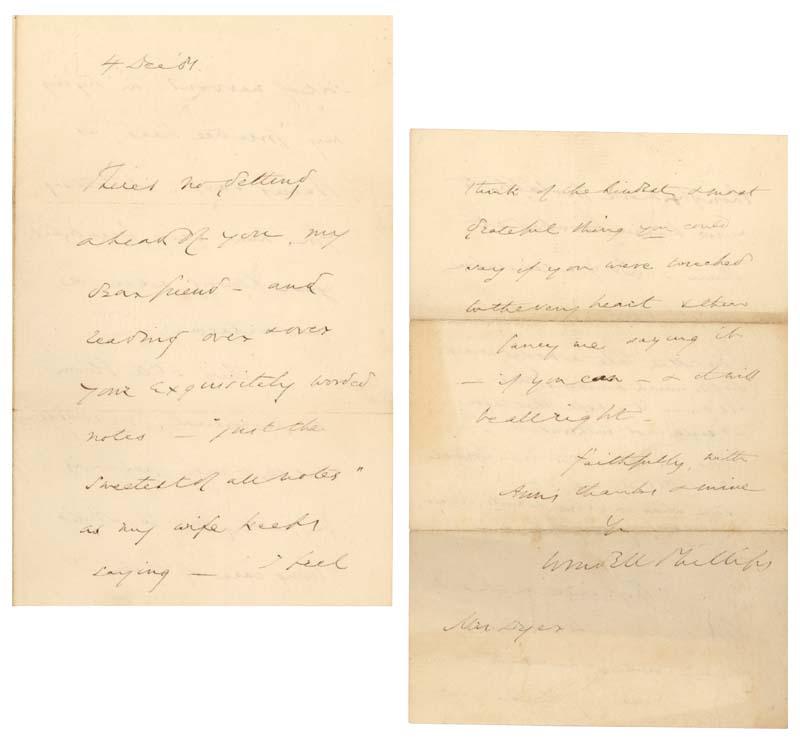 4 Dec '81.
There's no getting
ahead of you, my
dear friend – and
reading over & over
your exquisitely worded
notes – "just the
sweetest of all notes"
as my wife keeps
saying – I feel
think of the kindest & most
grateful thing you could
say if you were touched
to the very heart & then
fancy me saying it
– if you can – & it will
be all right –
Faithfully, with
Ann's thanks & mine
Yr
Wendell Phillips
Mrs Dyer –